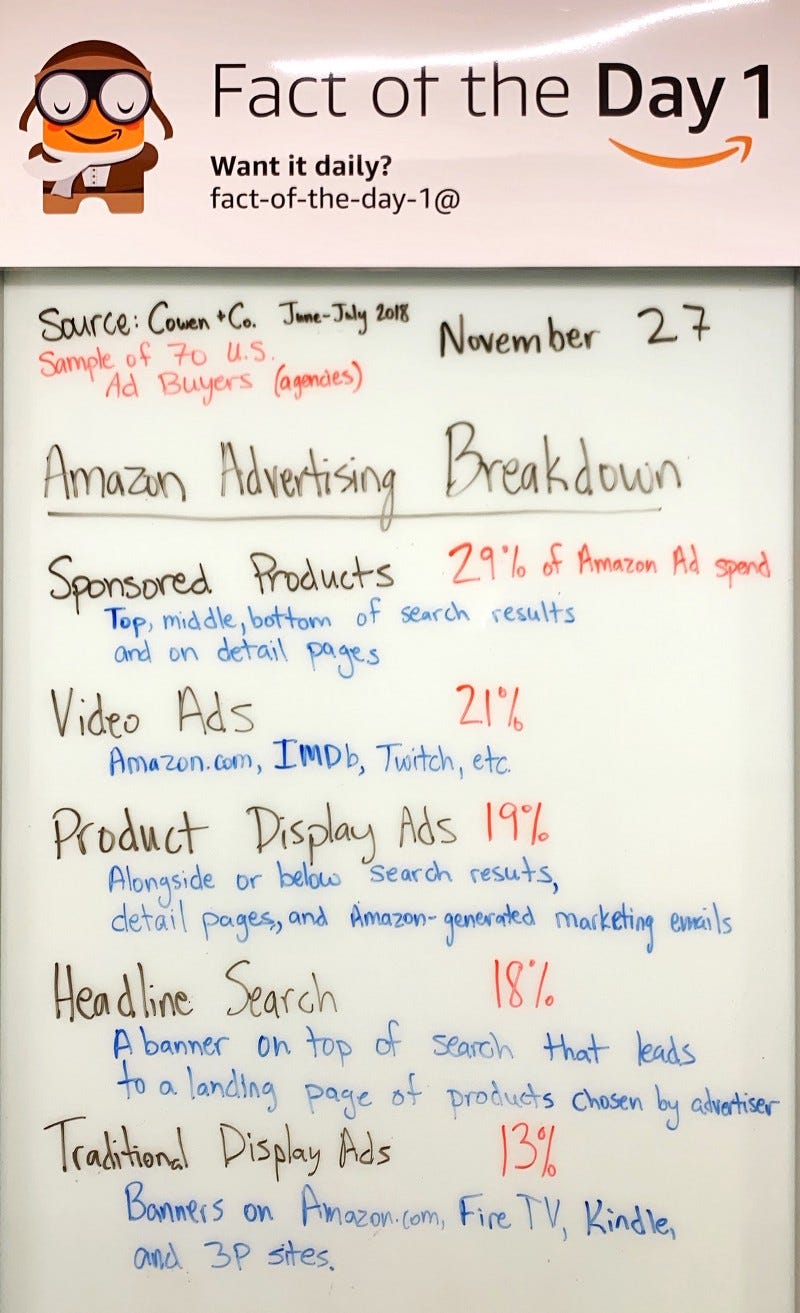 Fact of the Day 1
Want it daily?
fact-of-the-day-1@
Source: Cowen + Co. June-July 2018
November 27
Sample of 70 U.S.
Ad Buyers (agencies)
Amazon Advertising Breakdown
Sponsored Products 29% of Amazon Ad spend
Top, middle, bottom of search results
and on detail pages
Video Ads 21%
Amazon.com, IMDb, Twitch, etc.
Product Display Ads 19%
Alongside or below search resuts,
detail pages, and Amazon-generated marketing emails
Headline Search 18%
A banner on top of search that leads
to a landing page of products chosen by advertiser
Traditional Display Ads 13%
Banners on Amazon.com, Fire TV, Kindle,
and 3P sites.